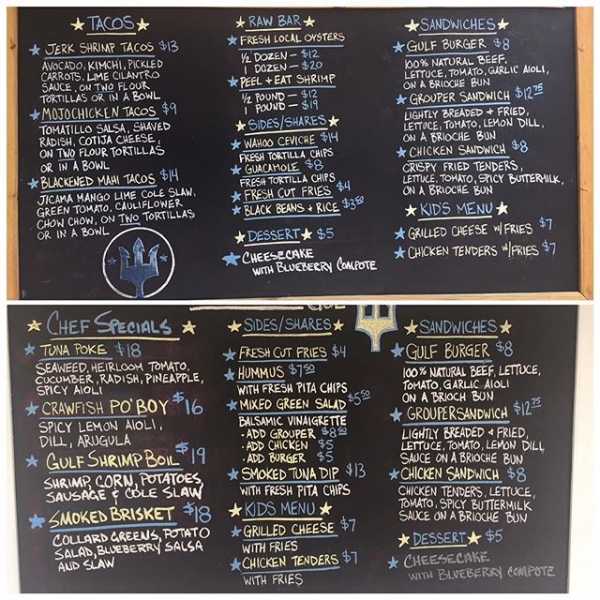 TACOS
JERK SHRIMP TACOS $13
AVOCADO, KIMCHI, PICKLED
CARROTS, LIME CILANTRO
SAUCE, ON TWO FLOUR
TORTILLAS OR IN A BOWL
MOJOCHICKEN TACOS $9
TOMATILLO SALSA, SHAVED
RADISH, COTIJA CHEESE,
ON TWO FLOUR TORTILLAS
OR IN A BOWL
BLACKENED MAHI TACOS $14
JICAMA MANGO LIME COLE SLAW,
GREEN TOMATO, CAULIFLOWER
CHOW CHOW, ON TWO TORTILLAS
OR IN A BOWL
RAW BAR
FRESH LOCAL OYSTERS
½ DOZEN — $12
1 DOZEN — $20
PEEL + EAT SHRIMP
½ POUND — $12
1 POUND — $19
SIDES/SHARES
WAHOO CEVICHE $14
FRESH TORTILLA CHIPS
GUACAMOLE $8
FRESH TORTILLA CHIPS
FRESH CUT FRIES $4
BLACK BEANS + RICE $3.50
DESSERT $5
CHEESECAKE
WITH BLUEBERRY COMPOTE
SANDWICHES
GULF BURGER $8
100% NATURAL BEEF,
LETTUCE, TOMATO, GARLIC AIOLI,
ON A BRIOCHE BUN
GROUPER SANDWICH $12.75
LIGHTLY BREADED + FRIED,
LETTUCE, TOMATO, LEMON DILL,
ON A BRIOCHE BUN
CHICKEN SANDWICH $8
CRISPY FRIED TENDERS,
LETTUCE, TOMATO, SPICY BUTTERMILK,
ON A BRIOCHE BUN
KID'S MENU
GRILLED CHEESE W/FRIES $7
CHICKEN TENDERS W/FRIES $7
CHEF SPECIALS
TUNA POKE $18
SEAWEED, HEIRLOOM TOMATO,
CUCUMBER, RADISH, PINEAPPLE,
SPICY AIOLI
CRAWFISH PO' BOY $16
SPICY LEMON AIOLI,
DILL, ARUGULA
GULF SHRIMP BOIL $19
SHRIMP, CORN, POTATOES,
SAUSAGE & COLE SLAW
SMOKED BRISKET $18
COLLARD GREENS, POTATO
SALAD, BLUEBERRY SALSA
AND SLAW
SIDES/SHARES
FRESH CUT FRIES $4
HUMMUS $7.50
WITH FRESH PITA CHIPS
MIXED GREEN SALAD $5.50
BALSAMIC VINAIGRETTE
- ADD GROUPER $8.50
- ADD CHICKEN $5
- ADD BURGER $5
SMOKED TUNA DIP $13
WITH FRESH PITA CHIPS
KIDS MENU
GRILLED CHEESE $7
WITH FRIES
CHICKEN TENDERS $7
WITH FRIES
SANDWICHES
GULF BURGER $8
100% NATURAL BEEF, LETTUCE,
TOMATO, GARLIC AIOLI
ON A BRIOCHE BUN
GROUPERSANDWICH $12.75
LIGHTLY BREADED + FRIED,
LETTUCE, TOMATO, LEMON DILL
SAUCE ON A BRIOCHE BUN
CHICKEN SANDWICH $8
CHICKEN TENDERS, LETTUCE,
TOMATO, SPICY BUTTERMILK
SAUCE ON A BRIOCHE BUN
DESSERT $5
CHEESECAKE
WITH BLUEBERRY COMPOTE